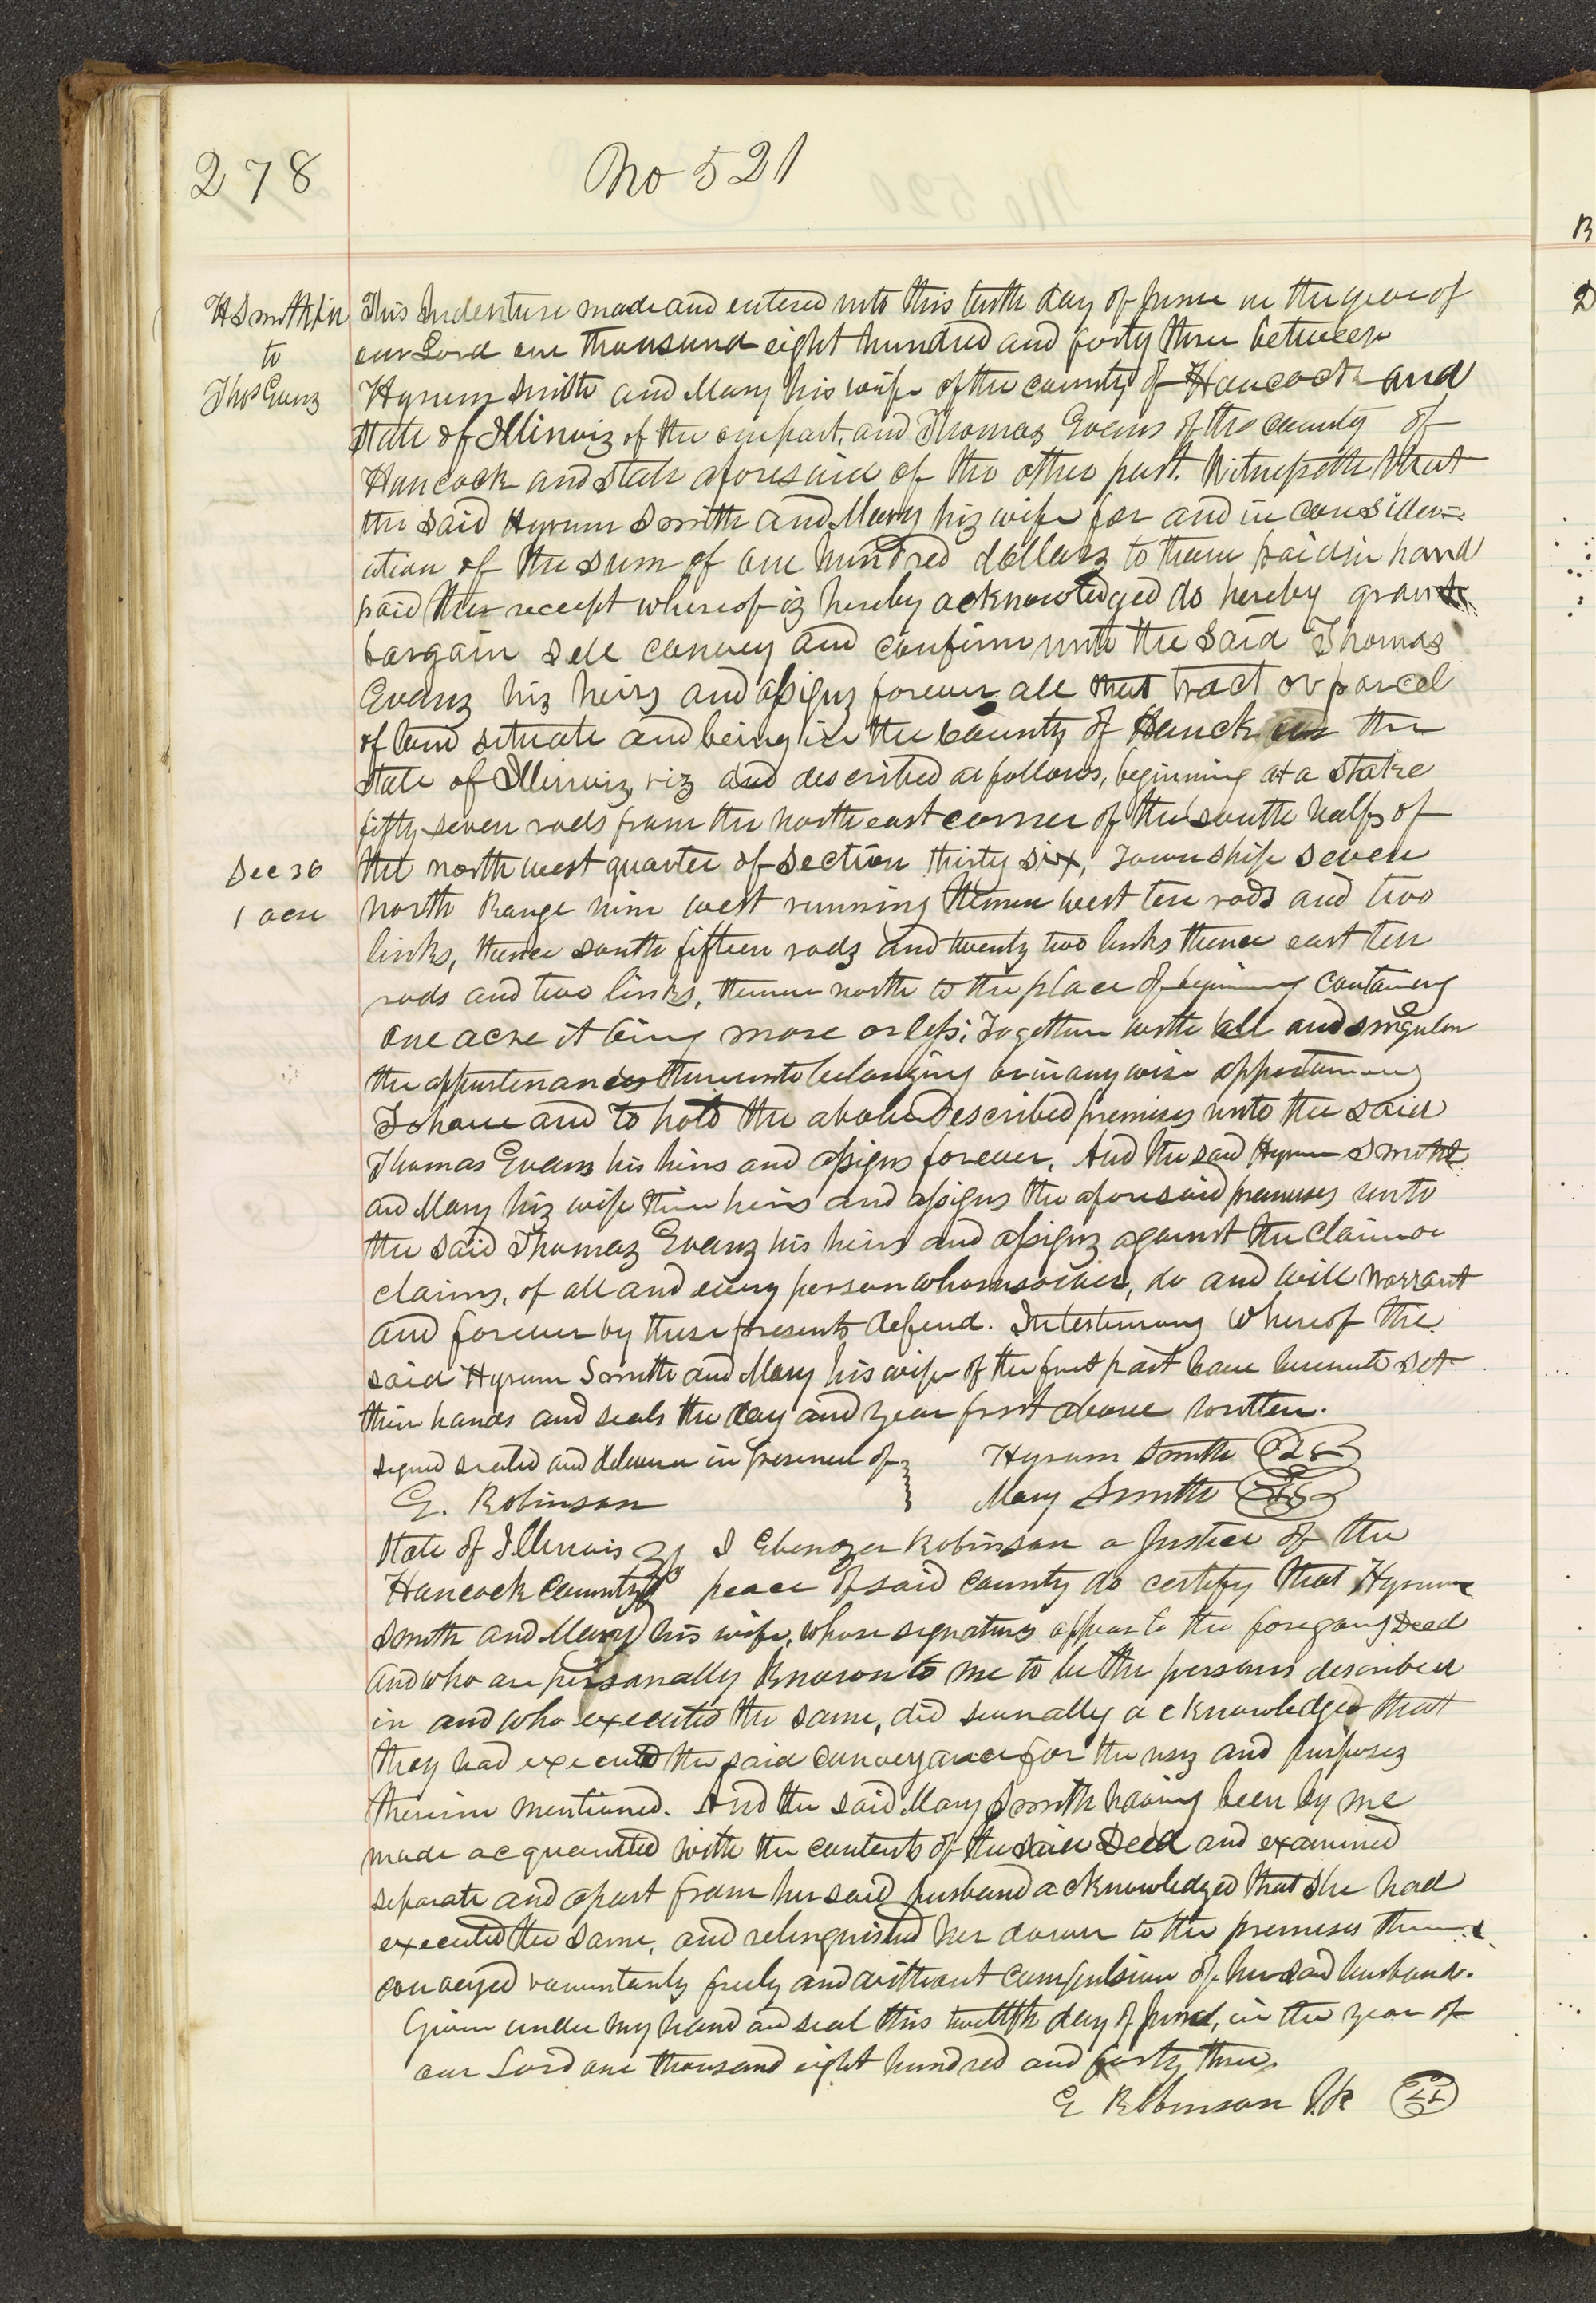 278
No 521
H Smith
to
Thos Evans
This Indenture made and entered into this tenth day of June in the year of
our Lord one thousand eight hundred and forty three between
Hyrum Smith and Mary his wife of the county of Hancock and
State of Illinois of the one part, and Thomas Evans of the county of
Hancock and State aforesaid of the other part. Witnesseth that
the said Hyrum Smith and Mary his wife for and in consider=
ation of the sum of one hundred dollars to them paid in hand
paid the receipt whereof is hereby acknowledged do hereby grant
bargain sell convey and confirm unto the said Thomas
Evans his heirs and assigns forever all that tract or parcel
of land situate and being in the county of Hanck the
State of Illinois, viz and described as follows, beginning at a Stake
fifty seven rods from the north east corner of the south half of
Sec 36
1 acre
the north west quarter of section thirty six, Township seven
north Range nine west running thence west ten rods and two
links, thence south fifteen rods and twenty two links thence east ten
rods and two links, thence north to the place of beginning containing
one acre it being more or less, Together with all and singular
the appurtenances thereunto belonging or in any wise appertaining
To have and to hold the above Described premises unto the said
Thomas Evans his heirs and assigns forever. And the said Hyrum Smith
and Mary his wife their heirs and assigns the aforesaid premises unto
the said Thomas Evans his heirs and assigns against the claim or
claims, of all and every person whomsoever, do and will warrant
and forever by these presents defend. In testimony whereof the
said Hyrum Smith and Mary his wife of the first part have hereunto set
their hands and seals the day and year first above written.
signed sealed and delivered in presence of
Hyrum Smith LS
E. Robinson
Mary Smith LS
State of Illinois
I Ebenezer Robinson a Justice of the
Hancock County
peace of said county do certify that Hyrum
Smith and Mary his wife, whose signatures appear to the foregoing Deed
and who are personally known to me to be the persons described
in and who executed the same, did severally acknowledged that
they had executed the said conveyance for the uses and purposes
therein mentioned. And the said Mary Smith having been by me
made acquainted with the contents of the said Deed and examined
separate and apart from her said husband acknowledged that she had
executed the same, and relinquished her dower to the premises therein
conveyed voluntarily freely and without compulsion of her said husband.
Given under my hand and seal this twelfth day of June, in the year of
our Lord one thousand eight hundred and forty three.
E Robinson J.P. LS